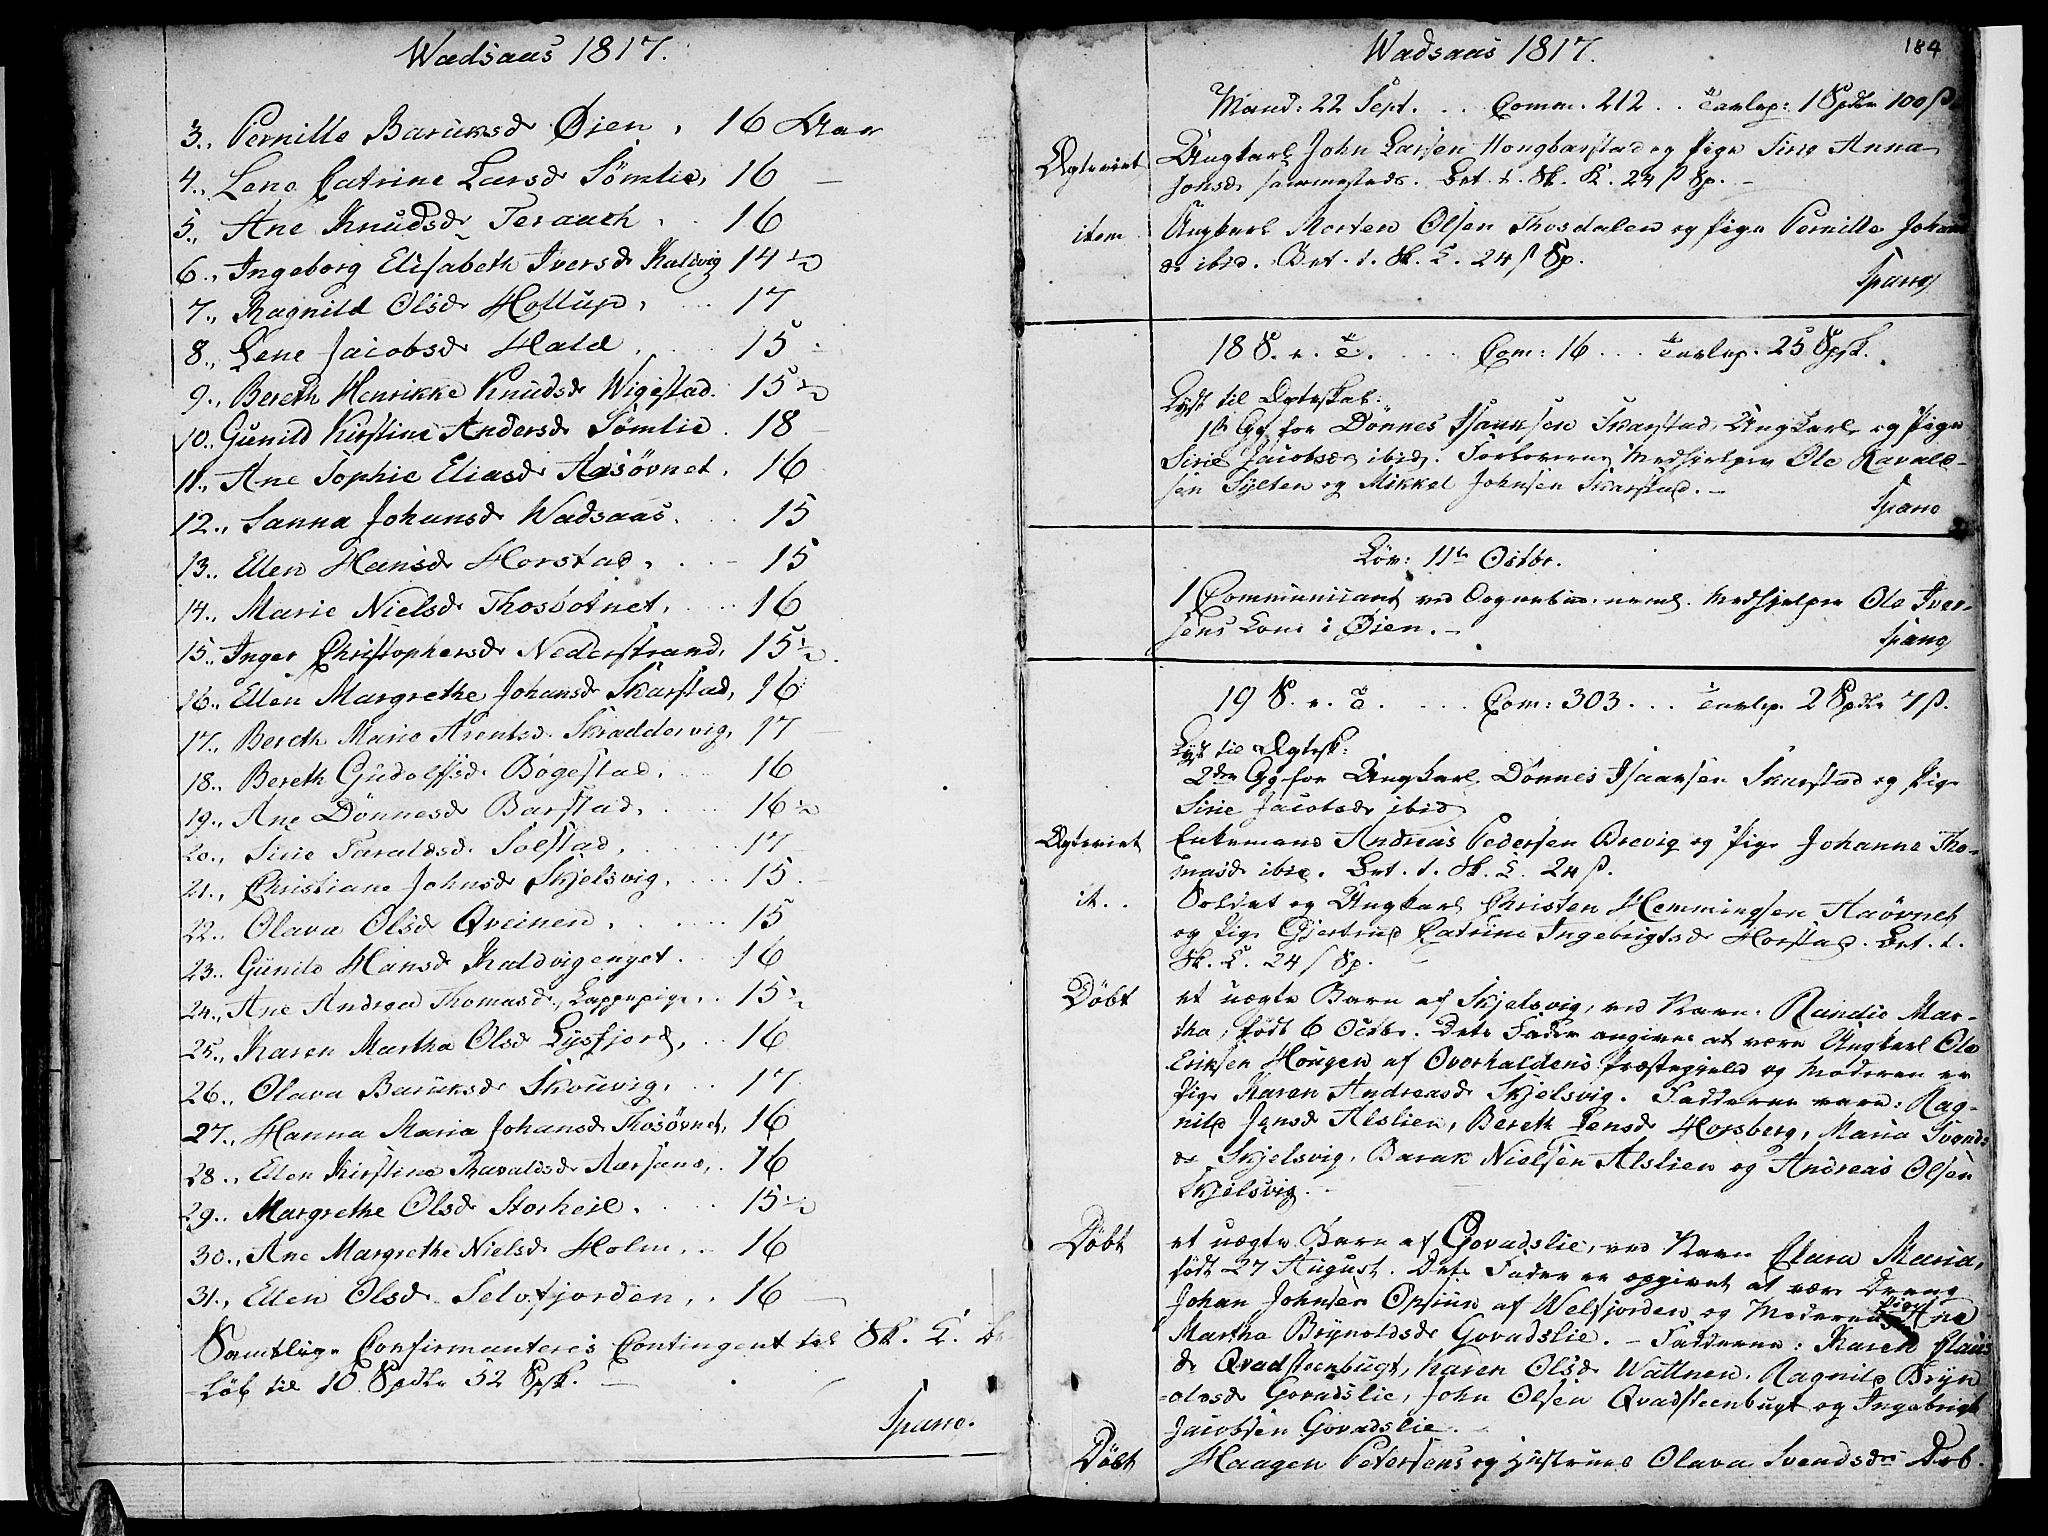 Wadsaas 1817.
3., Pernille Baruksdr Øien, 16 Aar
4., Lene Catrine Larsdr Sömlie, 16 —
5., Ane Knudsdr Teraack, 16
6., Ingeborg Elisabeth Iversdr Kaldvig 14½
7., Ragnild Olsdr Hollup, 17
8., Lene Jacobsdr Hald, 15
9., Bereth Henrikke Knudsdr Wigestad. 15½
10., Gunild Kirstine Andersdr Sömlie. 18 —
11., Ane Sophie Eliasdr Aasövnet. 16
12., Sanna Johansdr Wadsaas. 15
13., Ellen Hansdr Horstad, 15
14., Marie Nielsdr Thosbotnet, 16
15., Inger Christophersdr Nederstrand, 15½.
16., Ellen Margrethe Johansdr Skarstad, 16
17., Bereth Marie Arentsdr Skraddervig, 17 —
18., Bereth Gudolfsdr Bögestad, 16
19., Ane Dönnesdr Barstad, 16½
20., Sirie Taraldsdr Solstad, 17
21., Christiane Johnsdr Skjelsvig, 15
22., Olava Olsdr Qveinen, 15
23., Gunild Hansdr Kaldvigenget. 16
24., Ane Andrea Thomasdr, Lappepige, 15½
25., Karen Martha Olsdr Lysfjord, 16
26., Olava Baruksdr Skouvig, 17
27., Hanna Maria Johansdr Thosövnet, 16
28., Ellen Kirstine Ravaldsdr Aarsand, 16
29., Margrethe Olsdr Storheil. 15½
30., Ane Margrethe Nielsdr Holm, 16
31., Ellen Olsdr Selvfjorden, 16 —
Samtlige Confirmanteres Contingent til Sk. C. be-
löb til 10 Spdlr 52 Spsk. —
Spano.
Wadsaas 1817.
184
Mand: 22 Sept. . . Comm. 212 . . Tavlep: 1 Spdlr 100 ß.
Ægteviet Ungkarl John Larsen Hongbarstad og Pige Sirie Anna
Johsdr sammesteds. Bet. t. Sk. C. 24 ß Sp. —
item Ungkarl Morten Olsen Thosdalen og Pige Pernille Johans
dr ibid. Bet. t. Sk. C. 24 ß Sp.
Spano
18 S. e. T. . . . Com: 16 . . . Tavlep. 25 Spsk.
Lyst til Ægteskab:
1te Gg for Dönnes Isaaksen Skarstad, Ungkarl og Pige
Sirie Jacobsdr ibid. Forlovere Medhielper Ole Ravald-
sen Sylten og Mikkel Johnsen Skarstad. —
Spano
Löv: 11te Octbr.
1 Communicant ved Sognebud nemel. Medhjelper Ole Iver-
sens Kone i Øien. —
Spano
19 S. e. T. . . . Com: 303 . . . Tavlep. 2 Spdlr 7 ß.
Lyst til Ægtesk:
2den Gg for Ungkarl Dönnes Isaaksen Skarstad og Pige
Sirie Jacobsdr ibid
Ægteviet Enkemand Andreas Pedersen Brevig og Pige Johanne Tho-
masdr ibid. Bet. t. Sk. C. 24 ß.
it. . Soldat og Ungkarl Christen Hemmingsen Aaövnet
og Pige Gjertrud Catrine Ingebrigtsdr Horstad. Bet. t.
Sk. C. 24 ß Sp.
Döbt et uægte Barn af Skjelsvig, ved Navn: Randie Mar-
tha, födt 6 Octbr. Dets Fader angives at være Ungkarl Ole
Eriksen Hougen af Overhaldens Præstegjeld og Moderen er
Pige Karen Andreasdr Skjelsvig. Faddere vare: Rag-
nild Jensdr Alslien, Bereth Jensdr Horsberg, Maria Svends
dr Skjelsvig, Baruk Nielsen Alslien og Andreas Olsen
Skjelsvig. —
Döbt et uægte Barn af Govadslie, ved Navn Clara Maria,
födt 27 August. Dets Fader er opgivet at være Dreng
Johan Johnsen Opsiun af Welfjorden og Moderen Pige Ane
Martha Brynoldsdr Govadslie. — Fadderne: Karen Claus
dr Qvadsteenbugt, Karen Olsdr Wattnen, Ragnild Bryn
oldsdr Govadslie, John Olsen Qvadsteenbugt og Ingebrigt
Jacobsen Govadslie. —
Döbt Haagen Petersens og Hustrues Olava Svendsdr Deb.